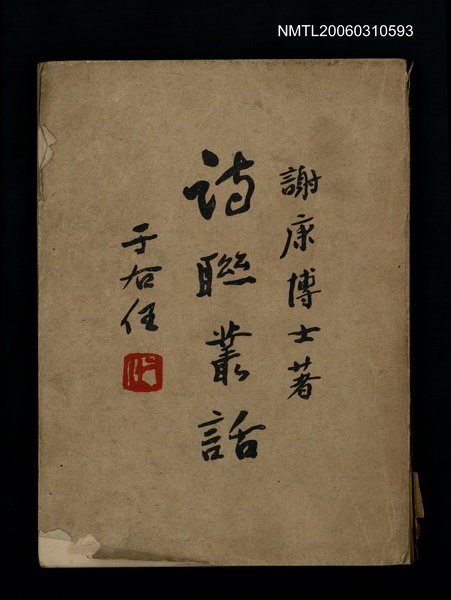 NMTL20060310593
謝康博士著
詩聯叢話
于右任